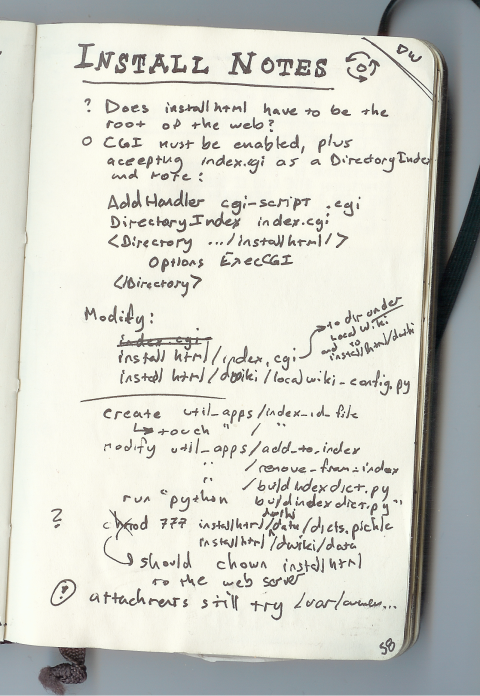 INSTALL NOTES
DW
? Does installhtml have to be the
root of the web?
o CGI must be enabled, plus
accepting index.cgi as a DirectoryIndex
and note:
AddHandler cgi-script .cgi
DirectoryIndex index.cgi
<Directory .../installhtml/>
Options ExecCGI
</Directory>
Modify:
index.cgi
installhtml/index.cgi
to dir under
local wiki
and to
installhtml/dwiki
installhtml/dwiki/localwiki-config.py
create util_apps/index_id_file
touch " / "
modify util_apps/add_to_index
" /remove_from_index
" /buildindexdict.py
run "python buildindexdict.py"
? chmod 777 installhtml/dwiki/data/dicts.pickle
installhtml/dwiki/data
should chown installhtml
to the web server
! attachments still try /var/
58